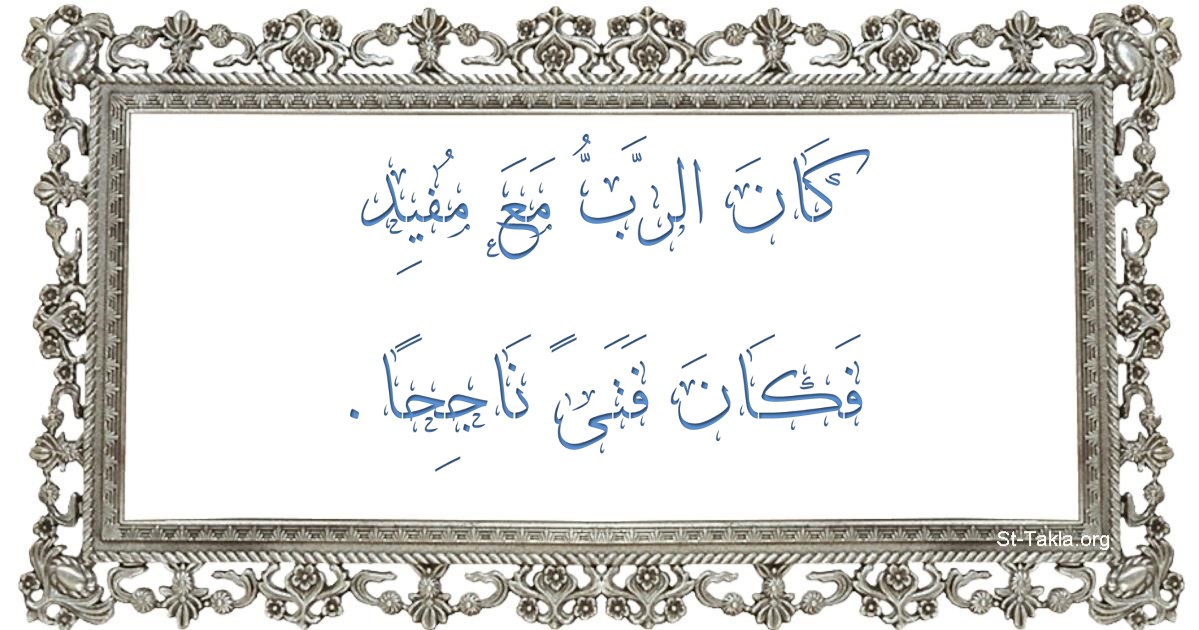 كَانَ الرَّبُّ مَعَ مُفِيدِ
فَكَانَ فَتَىً نَاجِحًا .
St-Takla.org